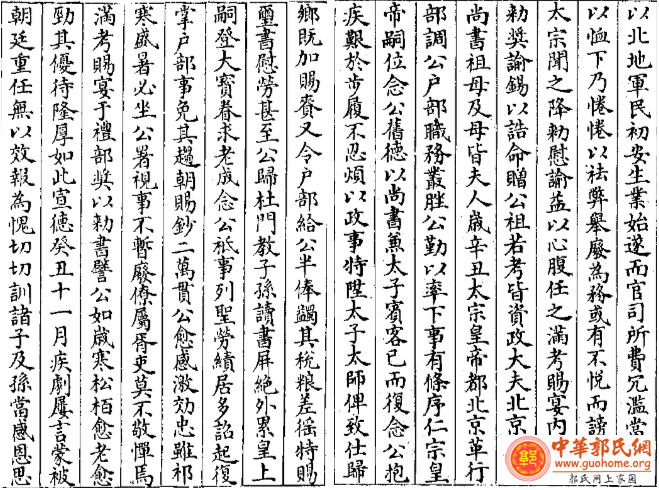 以北地軍民初安生業始遂而官司所費冗濫當
以恤下乃惓惓以祛弊舉廢為務或有不悅而謗
太宗聞之降勑慰諭益以心腹任之滿考賜宴内
勑奬諭錫以誥命贈公祖若考皆資政大夫北京
尚書祖母及母皆夫人歲辛丑太宗皇帝都北京革行
部調公戶部職務叢脞公勤以率下事有條序仁宗皇
帝嗣位念公舊德以尚書兼太子賓客已而復念公抱
疾艱於步履不忍煩以政事特陞太子太師俾致仕歸
鄉既加賜賚又令戶部給公半俸蠲其稅粮差徭特賜
璽書慰勞甚至公歸杜門教子孫讀書屏絕外累皇上
嗣登大寶眷求老成念公祗事列聖勞績居多詔起復
掌戶部事免其趨朝賜鈔二萬貫公愈感激効忠雖祁
寒盛暑必坐公署視事不暫廢僚屬胥吏莫不敬憚焉
滿考賜宴于禮部奬以勑書譬公如歲寒松栢愈老愈
勁其優待隆厚如此宣德癸丑十一月疾劇屢言蒙被
朝廷重任無以效報為愧切切訓諸子及孫當感恩思
中華郭氏網
www.guohome.org
郭氏网上家园